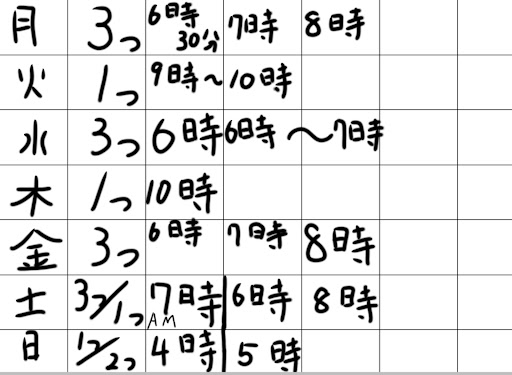 月 3つ 6時30分 7時 8時
火 1つ 9時〜10時
水 3つ 6時 6時〜7時
木 1つ 10時
金 3つ 6時 7時 8時
土 3つ/1つ 7時 AM 6時 8時
日 1つ/2つ 4時 5時